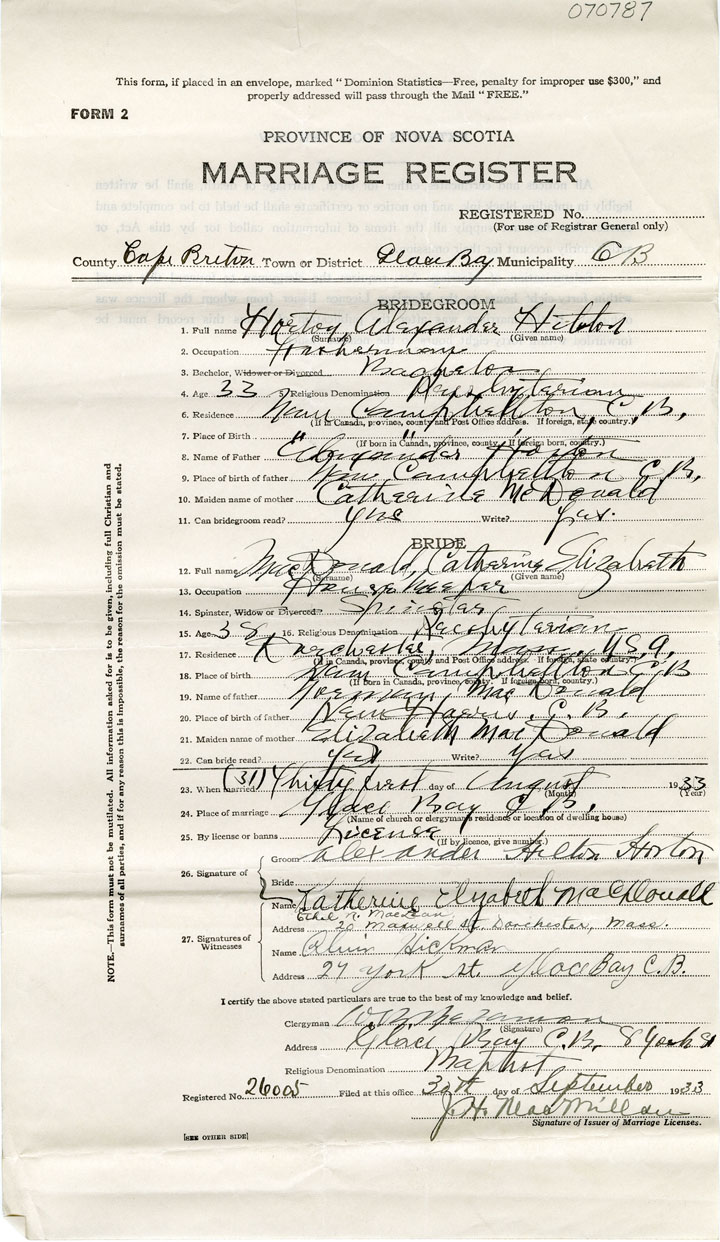 070787
This form, if placed in an envelope, marked "Dominion Statistics—Free, penalty for improper use $300," and
properly addressed will pass through the Mail "FREE."
FORM 2
PROVINCE OF NOVA SCOTIA
MARRIAGE REGISTER
REGISTERED No.
(For use of Registrar General only)
County Cape Breton Town or District Glace Bay Municipality C B
BRIDEGROOM
1. Full name Horton, Alexander Hilton
(Surname) (Given name)
2. Occupation Fisherman
3. Bachelor, Widower or Divorced Bachelor
4. Age 33 5. Religious Denomination Presbyterian
6. Residence New Campbellton, C, B,
(If in Canada, province, county and Post Office address. If foreign, state country.)
7. Place of Birth " "
(If born in Canada, province, county. If foreign born, country.)
8. Name of Father Alexander Horton
9. Place of birth of father New Campbellton C, B,
10. Maiden name of mother Catherine McDonald
11. Can bridegroom read? yes Write? yes.
BRIDE
12. Full name MacDonald, Catherine Elizabeth
(Surname) (Given name)
13. Occupation House Keeper
14. Spinster, Widow or Divorced? Spinster
15. Age 38, 16. Religious Denomination Presbyterian
17. Residence Dorchester, Mass, U,S,A,
(If in Canada, province, county and Post Office address. If foreign, state country.)
18. Place of birth New Campbellton C, B
(If born in Canada, province, county. If foreign born, country.)
19. Name of father Norman, MacDonald
20. Place of birth of father New Harris, C, B,
21. Maiden name of mother Elizabeth MacDonald
22. Can bride read? yes Write? yes
23. When married (31) Thirty first day of August 1933
(Month) (Year)
24. Place of marriage Glace Bay C, B,
(Name of church or clergyman's residence or location of dwelling house)
25. By license or banns License
(If by licence, give number.)
26. Signature of
Groom Alexander Hilton Horton
Bride Katherine Elizabeth MacDonald
27. Signatures of Witnesses
Name Ethel R. MacLean
Address 20 Maxwell St. Dorchester, Mass.
Name Hickman
Address 27 York St. Glace Bay C.B.
I certify the above stated particulars are true to the best of my knowledge and belief.
Clergyman
(Signature)
Address Glace Bay C.B. 8 York St
Religious Denomination Baptist
Registered No. 26005 Filed at this office 30th day of September 1933
J. H. MacMillan
Signature of Issuer of Marriage Licenses.
[SEE OTHER SIDE]
NOTE.—This form must not be mutilated. All information asked for is to be given, including full Christian and
surnames of all parties, and if for any reason this is impossible, the reason for the omission must be stated.